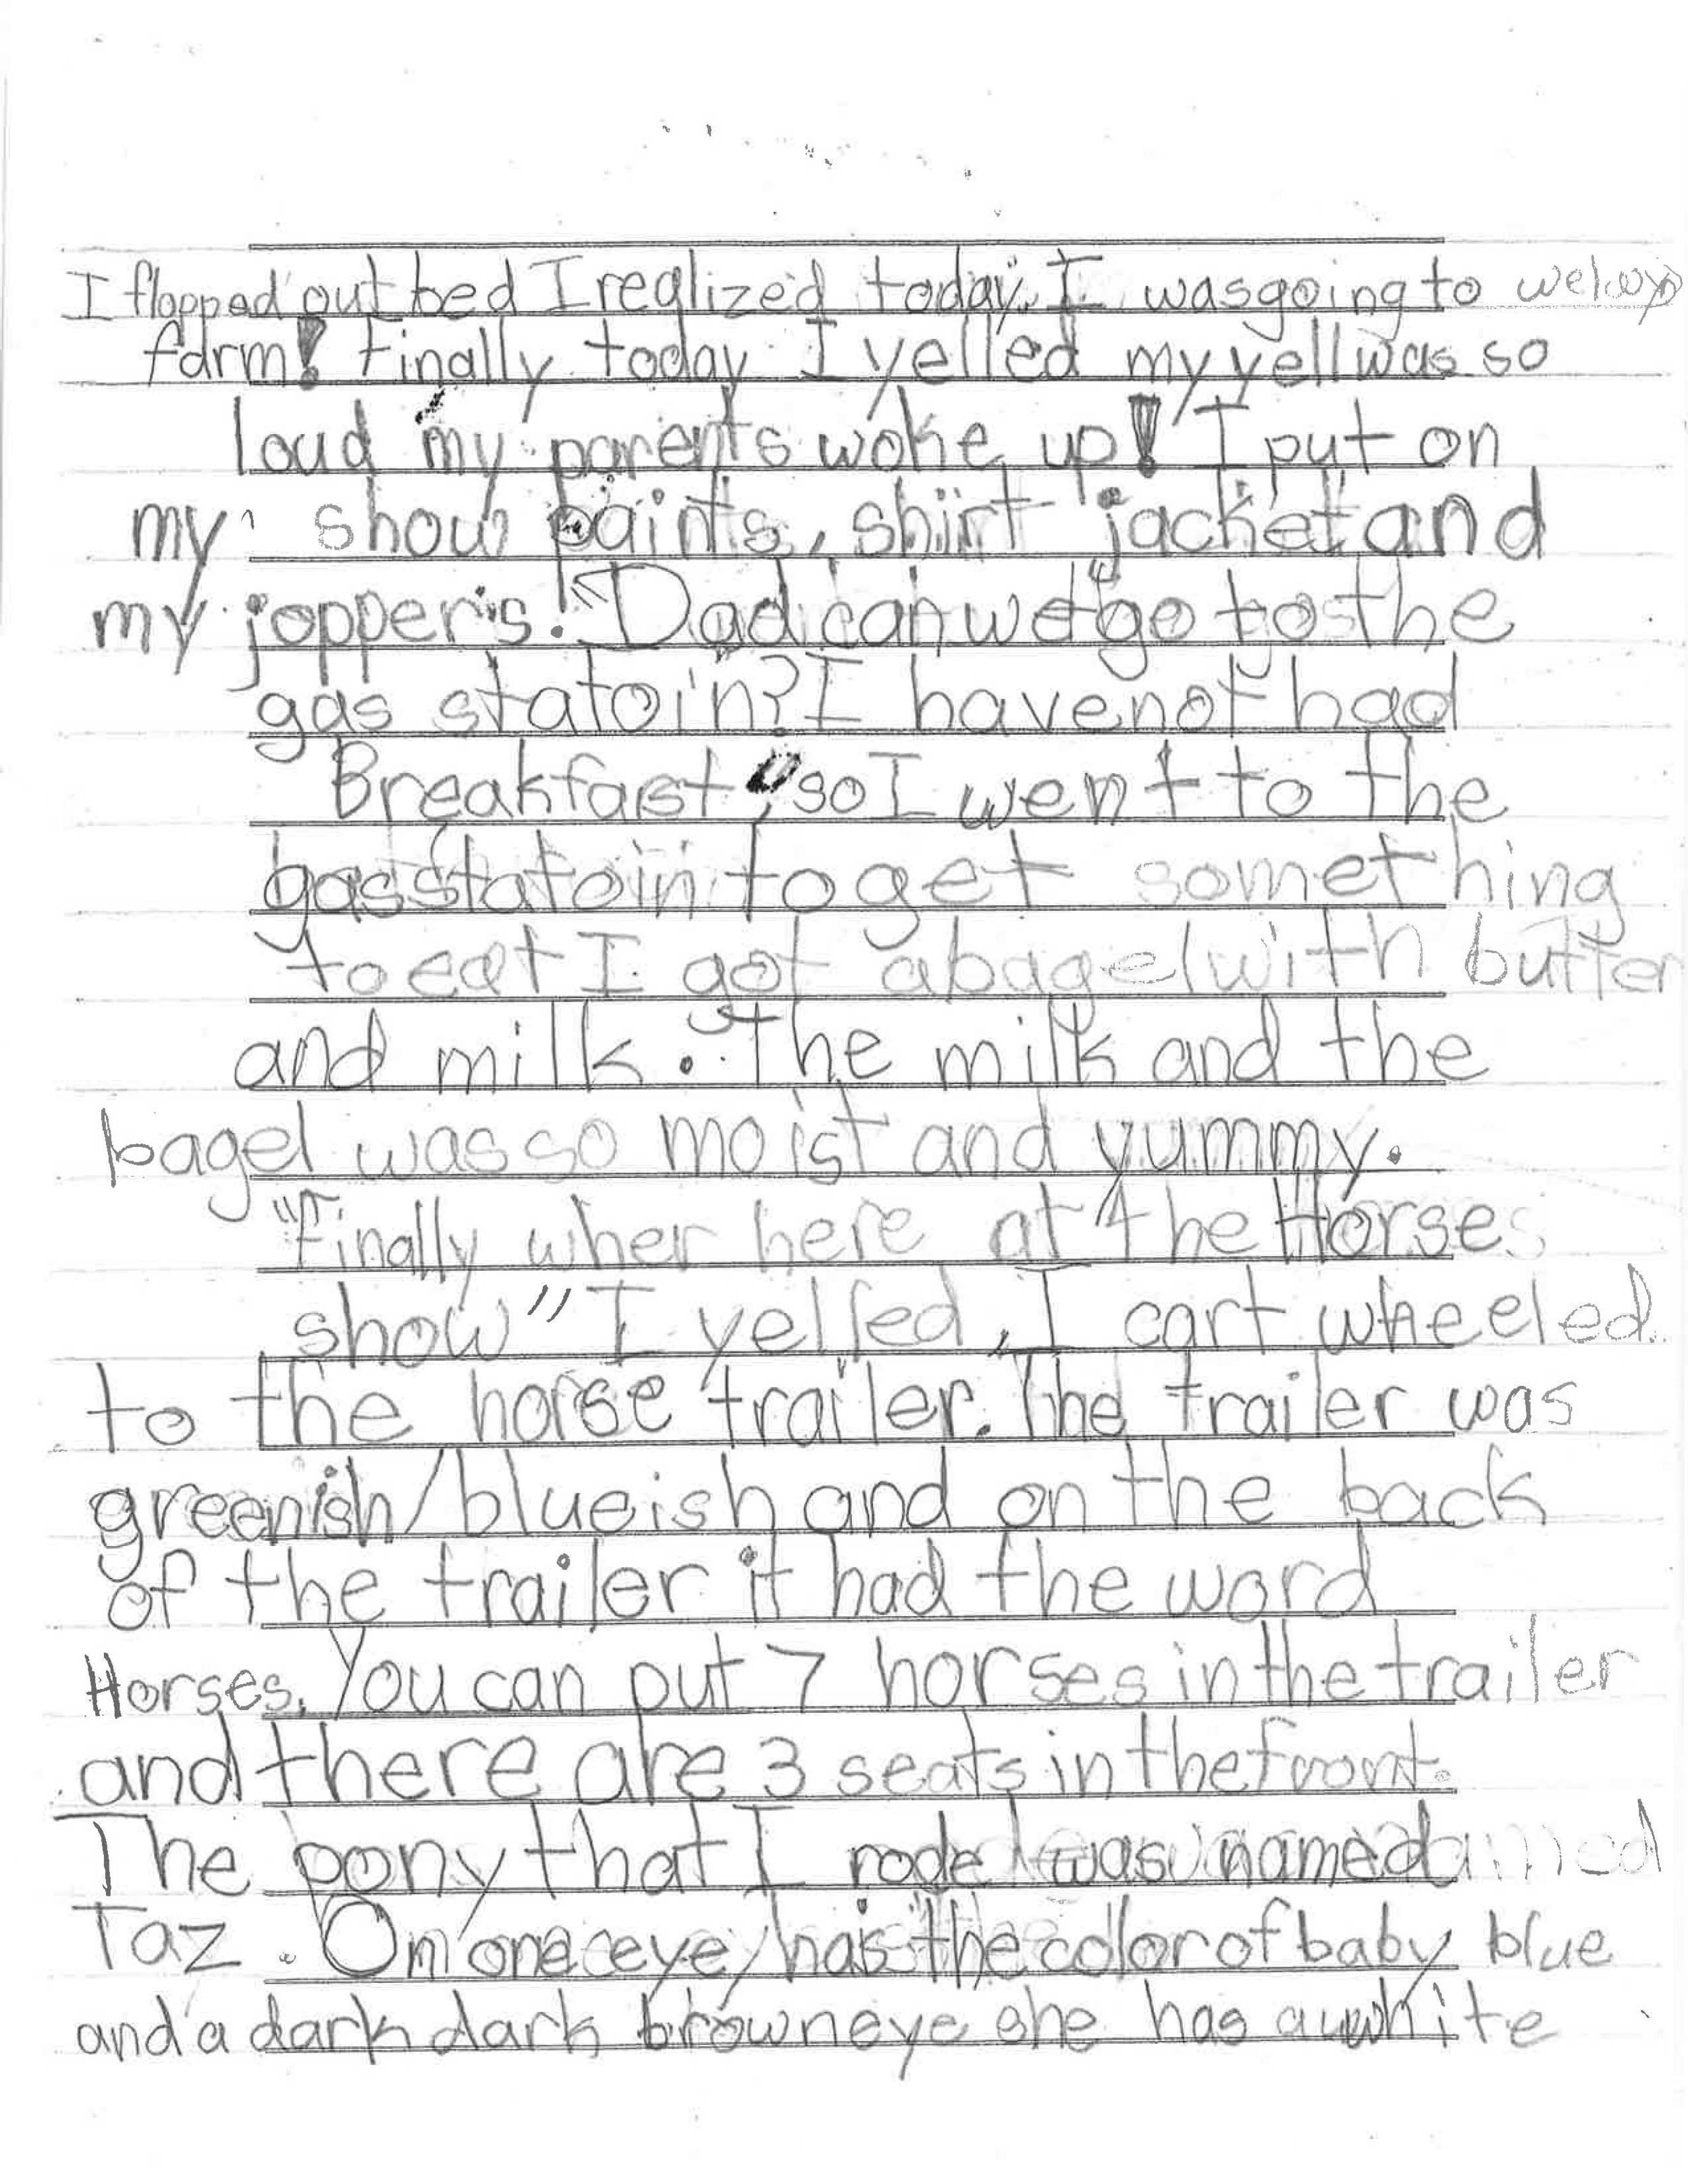 I flopped out bed I realized today I was going to
farm! finally today I yelled my yell was so
loud my parents woke up! I put on
my show paints, shirt jacket and
my jopper's! Dad can we go to the
gas statoin? I have not had
Breakfast, so I went to the
gas statoin to get something
to eat I got a bagel with butter
and milk. The milk and the
bagel was so moist and yummy.
"Finally wher here at the Horses
show" I yelled, I cart wheeled
to the horse trailer. The trailer was
greenish/blueish and on the back
of the trailer it had the word
Horses. You can put 7 horses in the trailer
and there are 3 seats in the front.
The pony that I rode was named
Taz. On one eye has the color of baby blue
and a dark dark brown eye she has a white